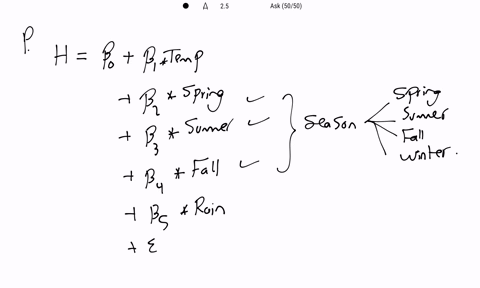 2.5 Ask (50/50)
P.
H = β0 + β1*Temp
+ β2 * Spring ✓
+ β3 * Summer ✓
+ β4 * Fall ✓
+ β5 * Rain
+ ε
Season
Spring
Summer
Fall
Winter.